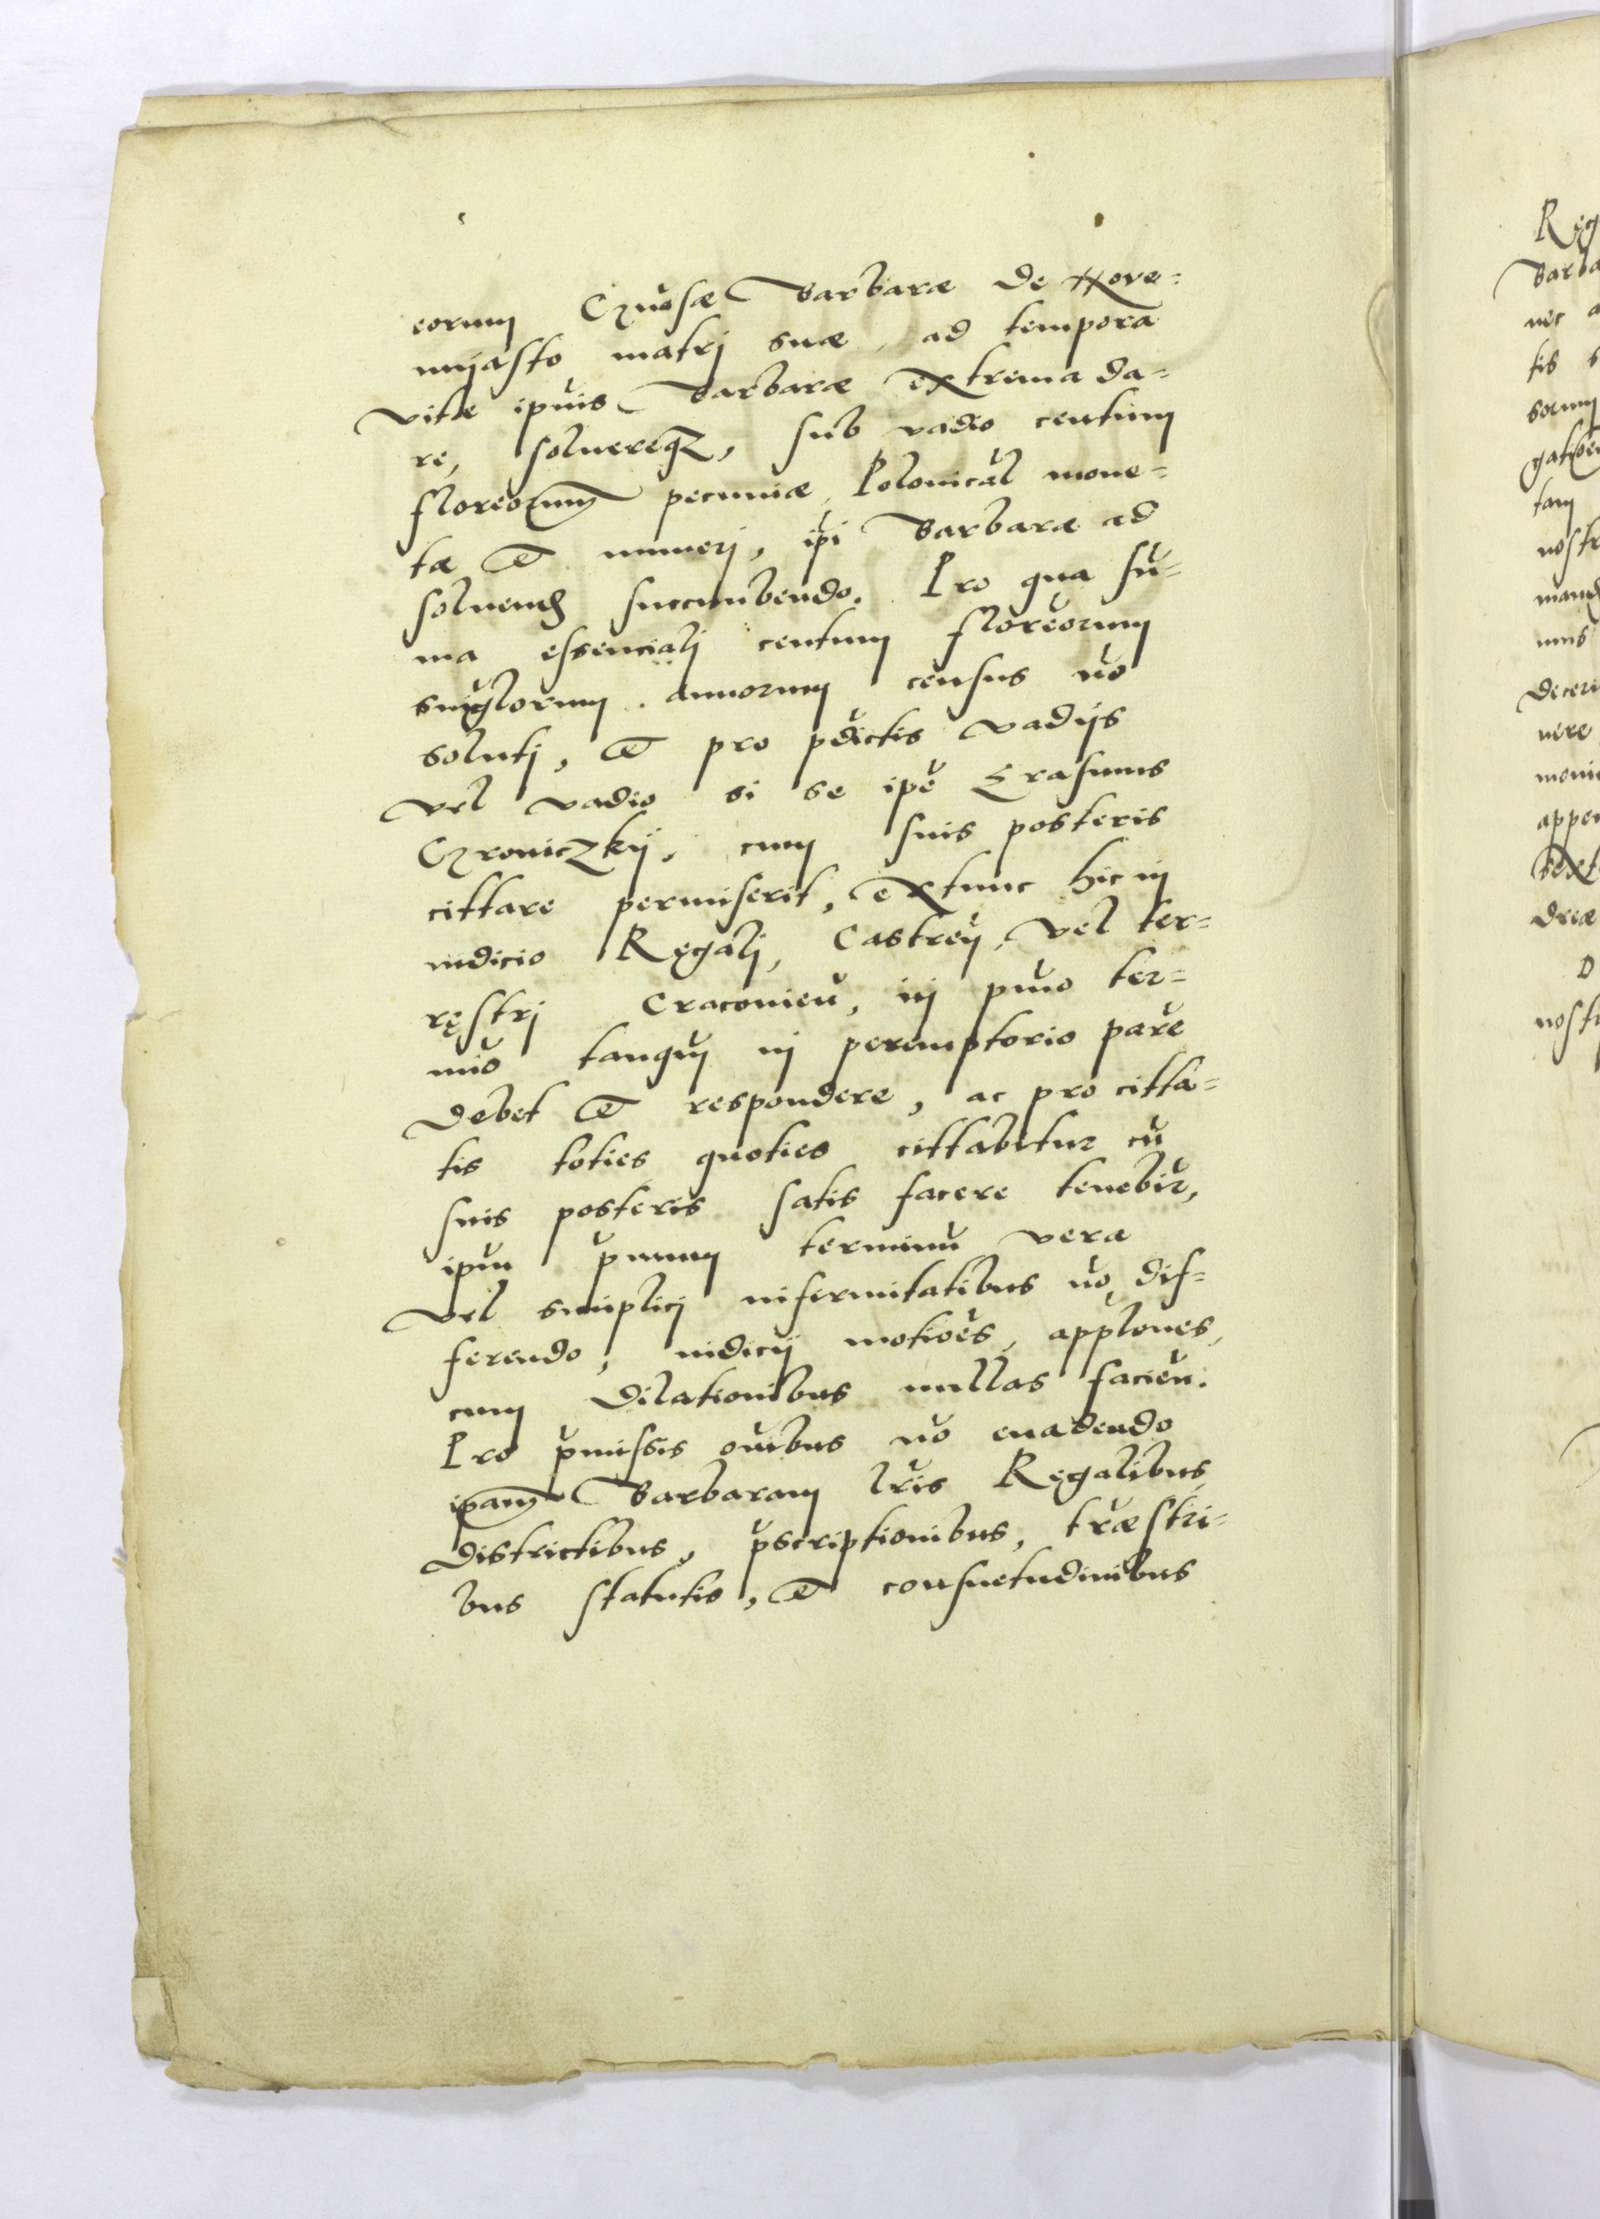 eorum Gñosæ Barbaræ de Nove=
mijasto matrj suæ, ad tempora
vitæ ipuis Barbaræ extrema da=
re, soluereqz, sub vadio centum
floreorum pecuniæ, Polonical mone=
tæ et numerj, ip̃i Barbaræ ad
soluend succumbendo. Pro qua sũ=
ma essencialj centum floreorum
singlorum annorum census nõ
solutj, et pro p̃dictis vadijs
vel vadio si se ip̃e Erasmus
Czroniczkij, cum suis posteris
cittare permiserit, extunc hic in
iudicio Regalj, Castreñ, vel ter=
restrj Cracovieñ, in pm̃o ter=
mĩo tanqm̃ in peremptorio parẽ
debet et respondere, ac pro citta=
tis toties quoties cittabitur cũ
suis posteris satis facere tenebir̃,
ipũ p̃mum terminũ vera
vel simplicj infirmitatibus nõ dif=
ferendo, iudicij motioẽs, appl̃oues,
cum dilationibus nullas facieñ.
Pro p̃missis oĩbus nõ euadendo
ipam Barbaram lr̃is Regalibus
districtibus, p̃scriptionibus, tr̃æstri=
bus statutis, et consuetudinibus
Reg
Barba
nec a
tis s
sorum
tam
nostr
mand
mus
decer
vere
appe
text
dreæ
nostr